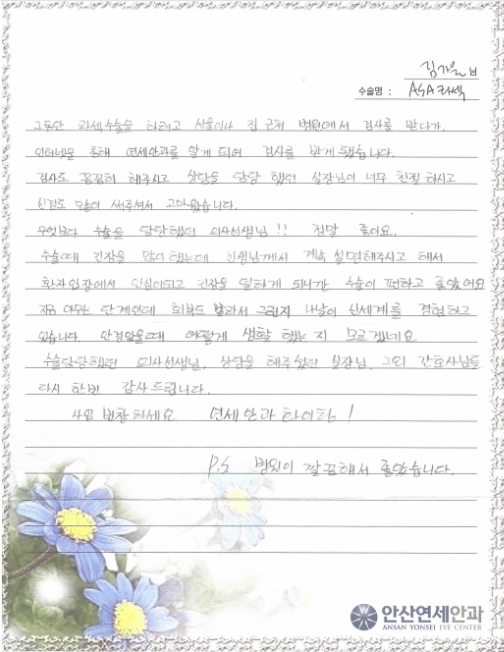 김가을 님
수술명 : ASA라섹
그동안 라섹수술을 하려고 서울이나 집 근처 병원에서 검사를 받다가
인터넷을 통해 연세안과를 알게 되어 검사를 받게 됐습니다.
검사도 꼼꼼히 해주시고 상담을 담당 했던 실장님이 너무 친절 하시고
신경도 많이 써주셔서 고마웠습니다.
무엇보다 수술을 담당했던 의사선생님!! 정말 좋아요.
수술때 긴장을 많이 했는데 선생님께서 계속 설명해주시고 해서
환자입장에서 안심이되고 긴장을 덜하게 되니깐 수술이 편하고 좋았어요
지금 아무는 단계인데 회복도 빨라서 그런지 나날이 신세계를 경험하고
있습니다 안경썼을때 어떻게 생활 했는지 모르겠네요
수술담당했던 의사선생님, 상담을 해주셨던 실장님, 그외 간호사님들
다시 한번 감사드립니다.
사업 번창하세요 연세안과 화이팅!
P.S 병원이 깔끔해서 좋았습니다.
안산연세안과
ANSAN YONSEI EYE CENTER